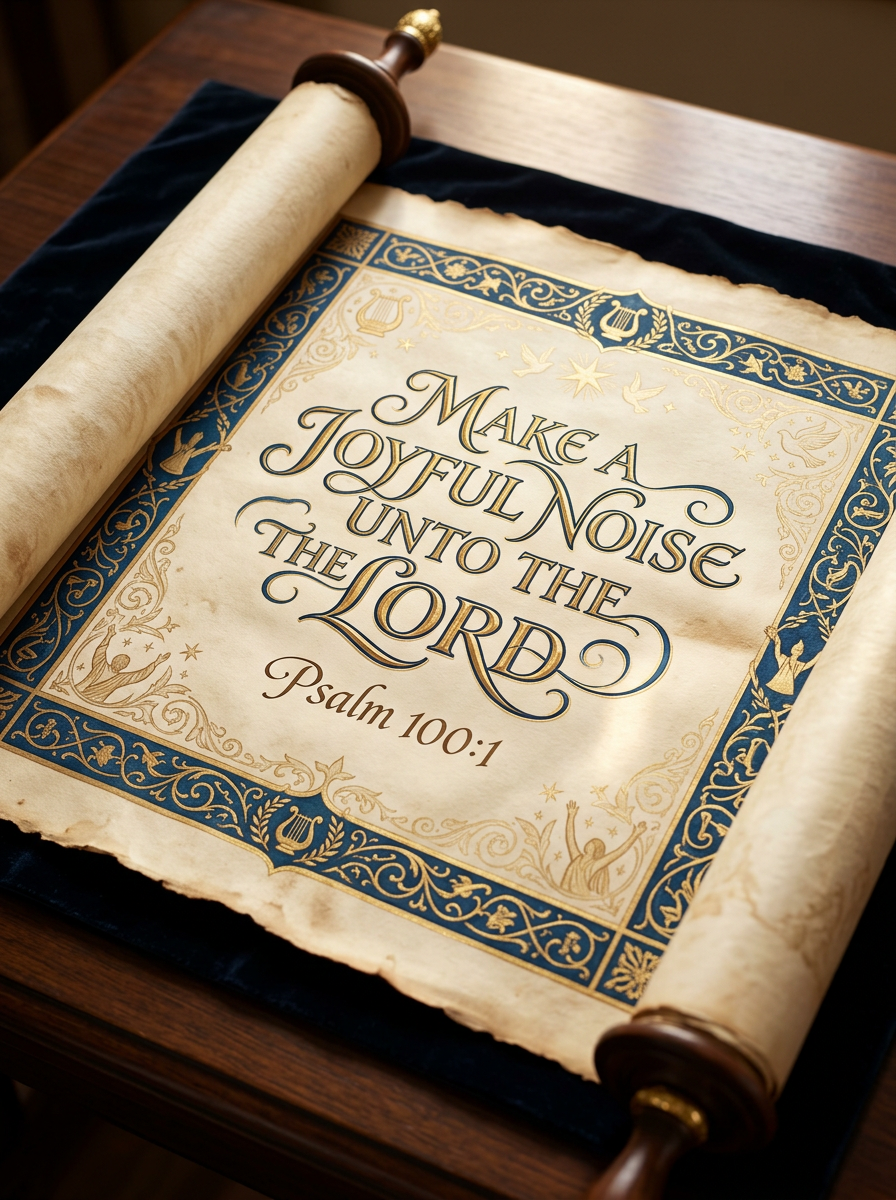 MAKE A
JOYFUL NOISE
UNTO THE
THE LORD
Psalm 100:1